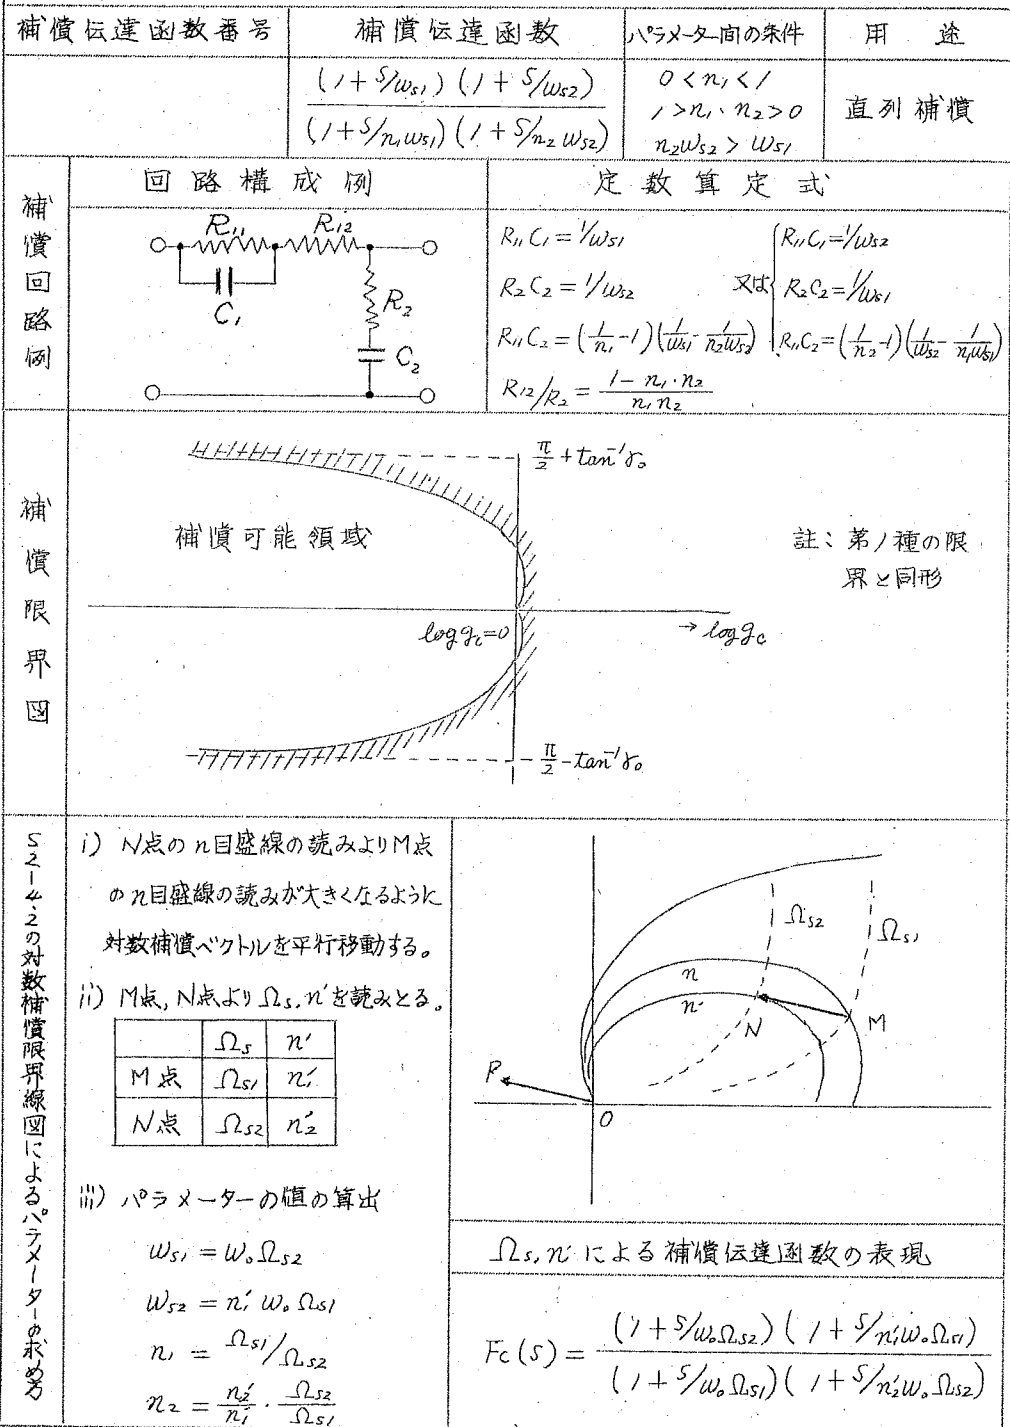 補償伝達函数番号 補償伝達函数 パラメーター間の条件 用途
(1+S/ω_{S1})(1+S/ω_{S2}) / (1+S/n_1ω_{S1})(1+S/n_2ω_{S2})
0<n_1<1
1>n_1・n_2>0
n_2ω_{S2}>ω_{S1}
直列補償
補償回路例
回路構成例
R_{11} R_{12}
C_1
R_2
C_2
定数算定式
R_{11}C_1=1/ω_{S1}
R_2C_2=1/ω_{S2}
R_{11}C_2=(1/n_1-1)(1/ω_{S1}-1/n_2ω_{S2})
R_{12}/R_2=(1-n_1・n_2)/n_1n_2
又は
R_{11}C_1=1/ω_{S2}
R_2C_2=1/ω_{S1}
R_{11}C_2=(1/n_2-1)(1/ω_{S2}-1/n_1ω_{S1})
補償限界図
π/2+tan^{-1}γ_0
補償可能領域
log g_c=0
→ log g_c
-π/2-tan^{-1}γ_0
註:第1種の限
界と同形
S2-4.2の対数補償限界線図によるパラメーターの求め方
i) N点のn目盛線の読みよりM点
のn目盛線の読みが大きくなるように
対数補償ベクトルを平行移動する。
ii) M点,N点よりΩ_S,n'を読みとる。
Ω_S n'
M点 Ω_{S1} n_1'
N点 Ω_{S2} n_2'
iii) パラメーターの値の算出
ω_{S1}=ω_0Ω_{S2}
ω_{S2}=n_1'ω_0Ω_{S1}
n_1=Ω_{S1}/Ω_{S2}
n_2=n_2'/n_1'・Ω_{S2}/Ω_{S1}
Ω_{S2}
Ω_{S1}
n
n'
N
M
P
O
Ω_S,n'による補償伝達函数の表現
Fc(S)=(1+S/ω_0Ω_{S2})(1+S/n_1'ω_0Ω_{S1}) / (1+S/ω_0Ω_{S1})(1+S/n_2'ω_0Ω_{S2})